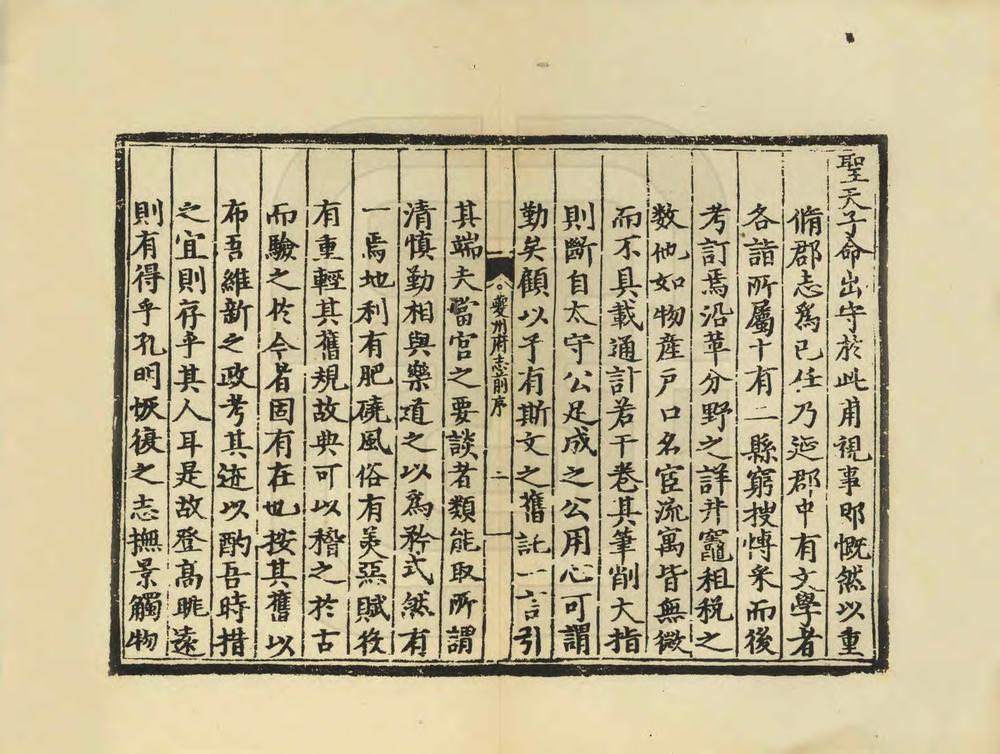 聖天子命出守於此甫視事即慨然以重
脩郡志爲已任乃延郡中有文學者
各詣所屬十有二縣窮搜博采而後
考訂焉沿革分野之詳井竈租税之
数他如物産戸口名宦流寓皆無微
而不具載通計若干卷其筆削大指
則斷自太守公足成之公用心可謂
勤矣顧以予有斯文之舊託一言引
夔州府志前序
二
其端夫當官之要談者類能取所謂
清慎勤相與樂道之以爲矜式然有
一焉地利有肥磽風俗有美惡賦役
有重輕其舊規故典可以稽之於古
而驗之於今者固有在也按其舊以
布吾維新之政考其迹以酌吾時措
之宜則存乎其人耳是故登高眺遠
則有得乎孔明恢復之志撫景觸物